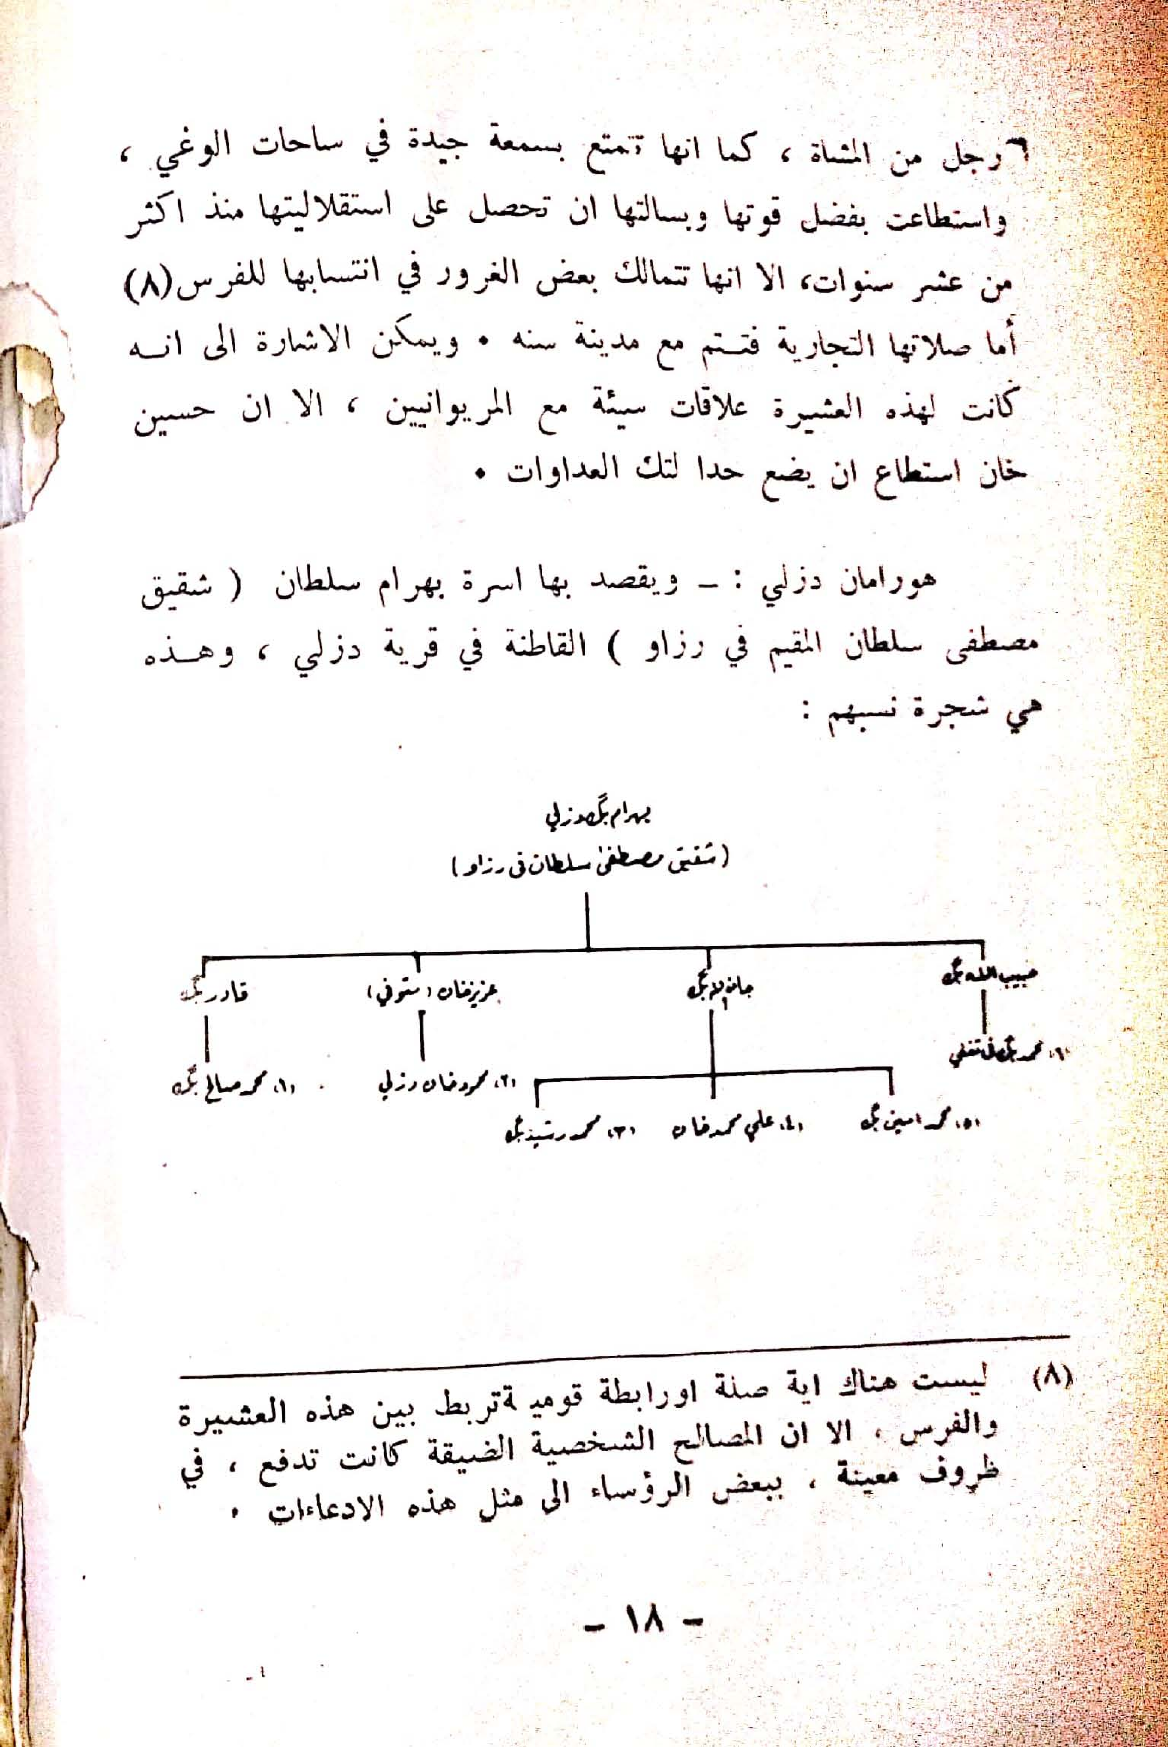 رجل من المشاة ، كما انها تتمتع بسمعة جيدة في ساحات الوغي ،
واستطاعت بفضل قوتها وبسالتها ان تحصل على استقلاليتها منذ اكثر
من عشر سنوات، الا انها تتمالك بعض الغرور في انتسابها للفرس(٨)
أما صلاتها التجارية فتــتم مع مدينة سنه . ويمكن الاشارة الى انــه
كانت لهذه العشيرة علاقات سيئة مع المريوانيين ، الا ان حسين
خان استطاع ان يضع حدا لتك العداوات .
هورامان دزلي : ــ ويقصد بها اسرة بهرام سلطان ( شقيق
مصطفى سلطان المقيم في رزاو ) القاطنة في قرية دزلي ، وهــذه
هي شجرة نسبهم :
بهرام بگ دزلي
(شقيق مصطفى سلطان في رزاو)
حبيب الله بگ
جان بگ
عزيز خان (متوفي)
قادر بگ
٦. محمد بگ في
٢. محمود خان دزلي
١. محمد صالح بگ
٥. محمد امين بگ
٤. علي محمد خان
٣. محمد رشيد بگ
(٨) ليست هناك اية صلة اورابطة قومية تربط بين هذه العشيرة
والفرس ، الا ان المصالح الشخصية الضيقة كانت تدفع ، في
ظروف معينة ، ببعض الرؤساء الى مثل هذه الادعاءات .
- ١٨ -